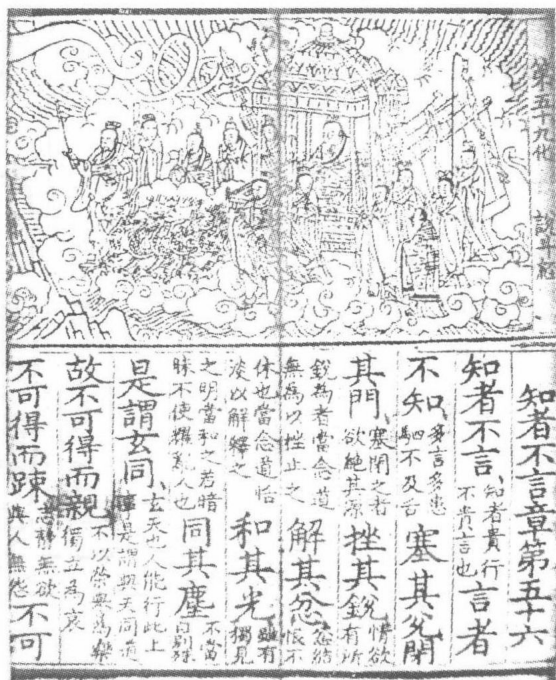 五十九化
知者不言章第五十六
知者不言、知者貴行不貴言也言者
不知、多言多患駟不及舌塞其兌閉
其門、塞閉之者欲絕其源挫其銳情欲有所
銳為者當念道無為以挫止之解其忿忿結恨不
休也當念道恬淡以解釋之和其光雖有獨見
之明當和之若暗昧不使耀亂人也同其塵不當自別殊
是謂玄同、玄天也人能行此上事是謂與天同道
故不可得而親不以榮為樂獨立為哀
不可得而踈志靜無欲與人無怨不可